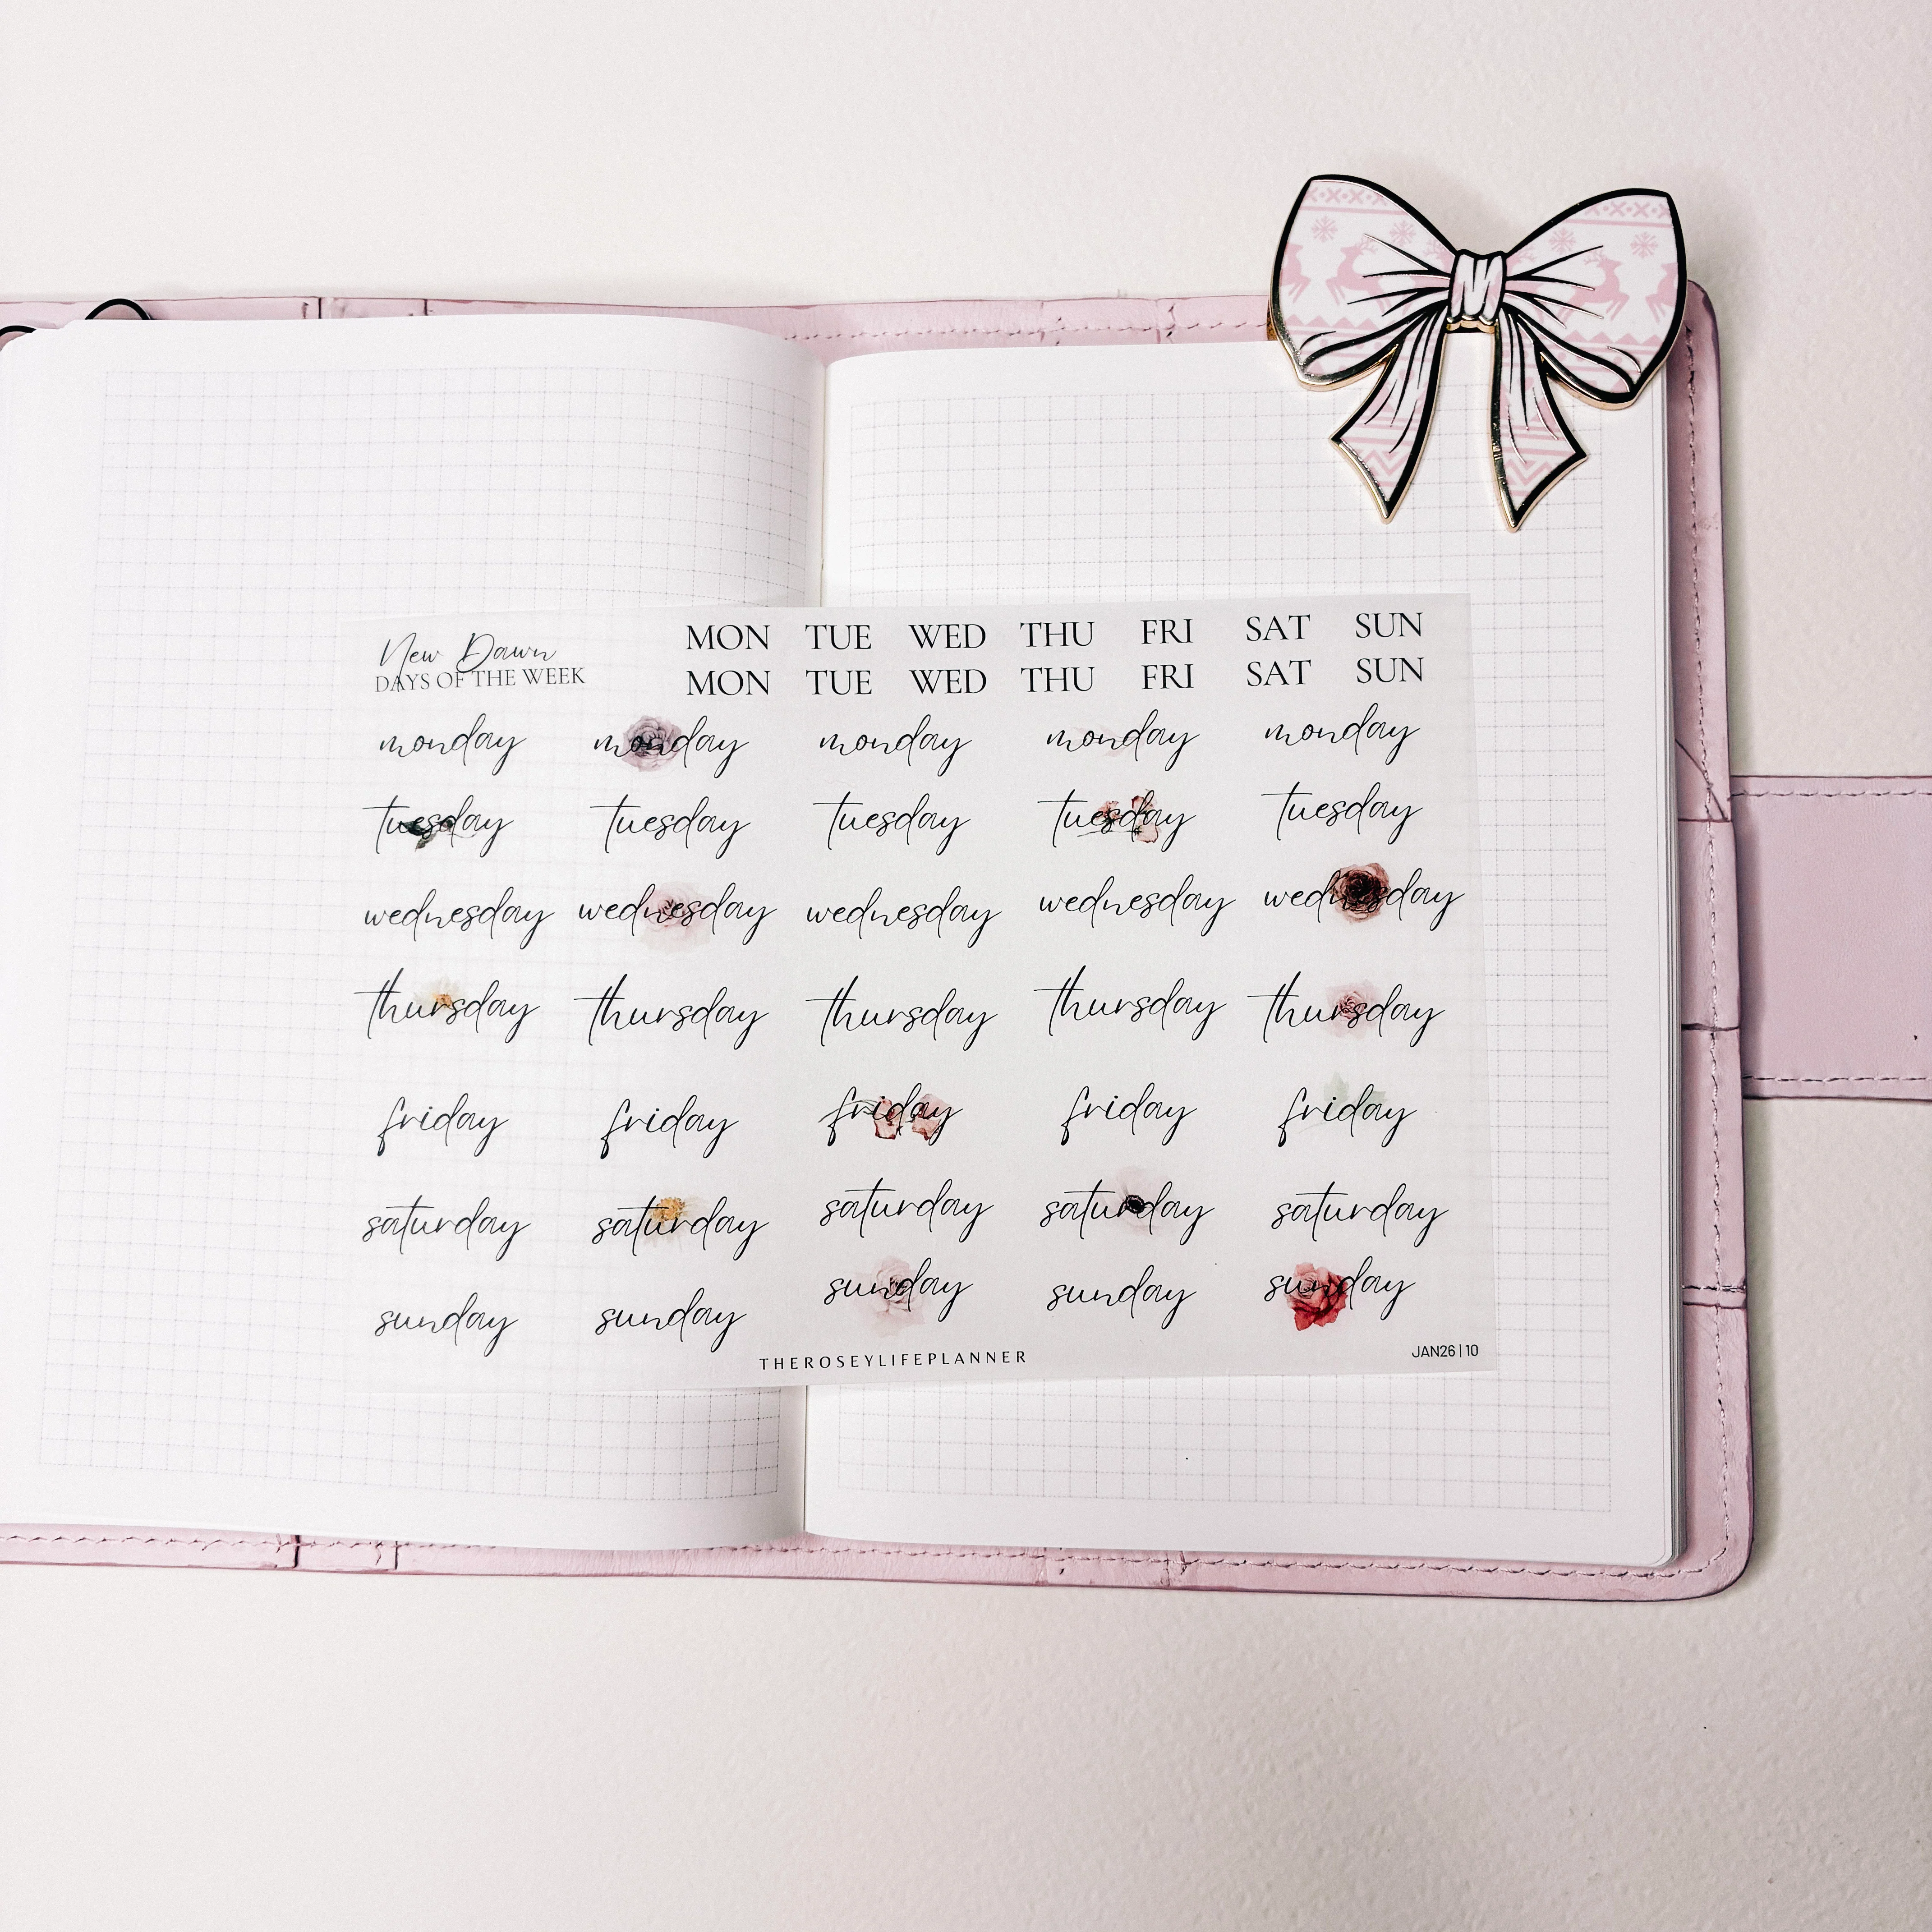 New Dawn
DAYS OF THE WEEK
MON TUE WED THU FRI SAT SUN
MON TUE WED THU FRI SAT SUN
monday monday monday monday monday
tuesday tuesday tuesday tuesday tuesday
wednesday wednesday wednesday wednesday wednesday
thursday thursday thursday thursday thursday
friday friday friday friday friday
saturday saturday saturday saturday saturday
sunday sunday sunday sunday sunday
THEROSEYLIFEPLANNER
JAN26 | 10